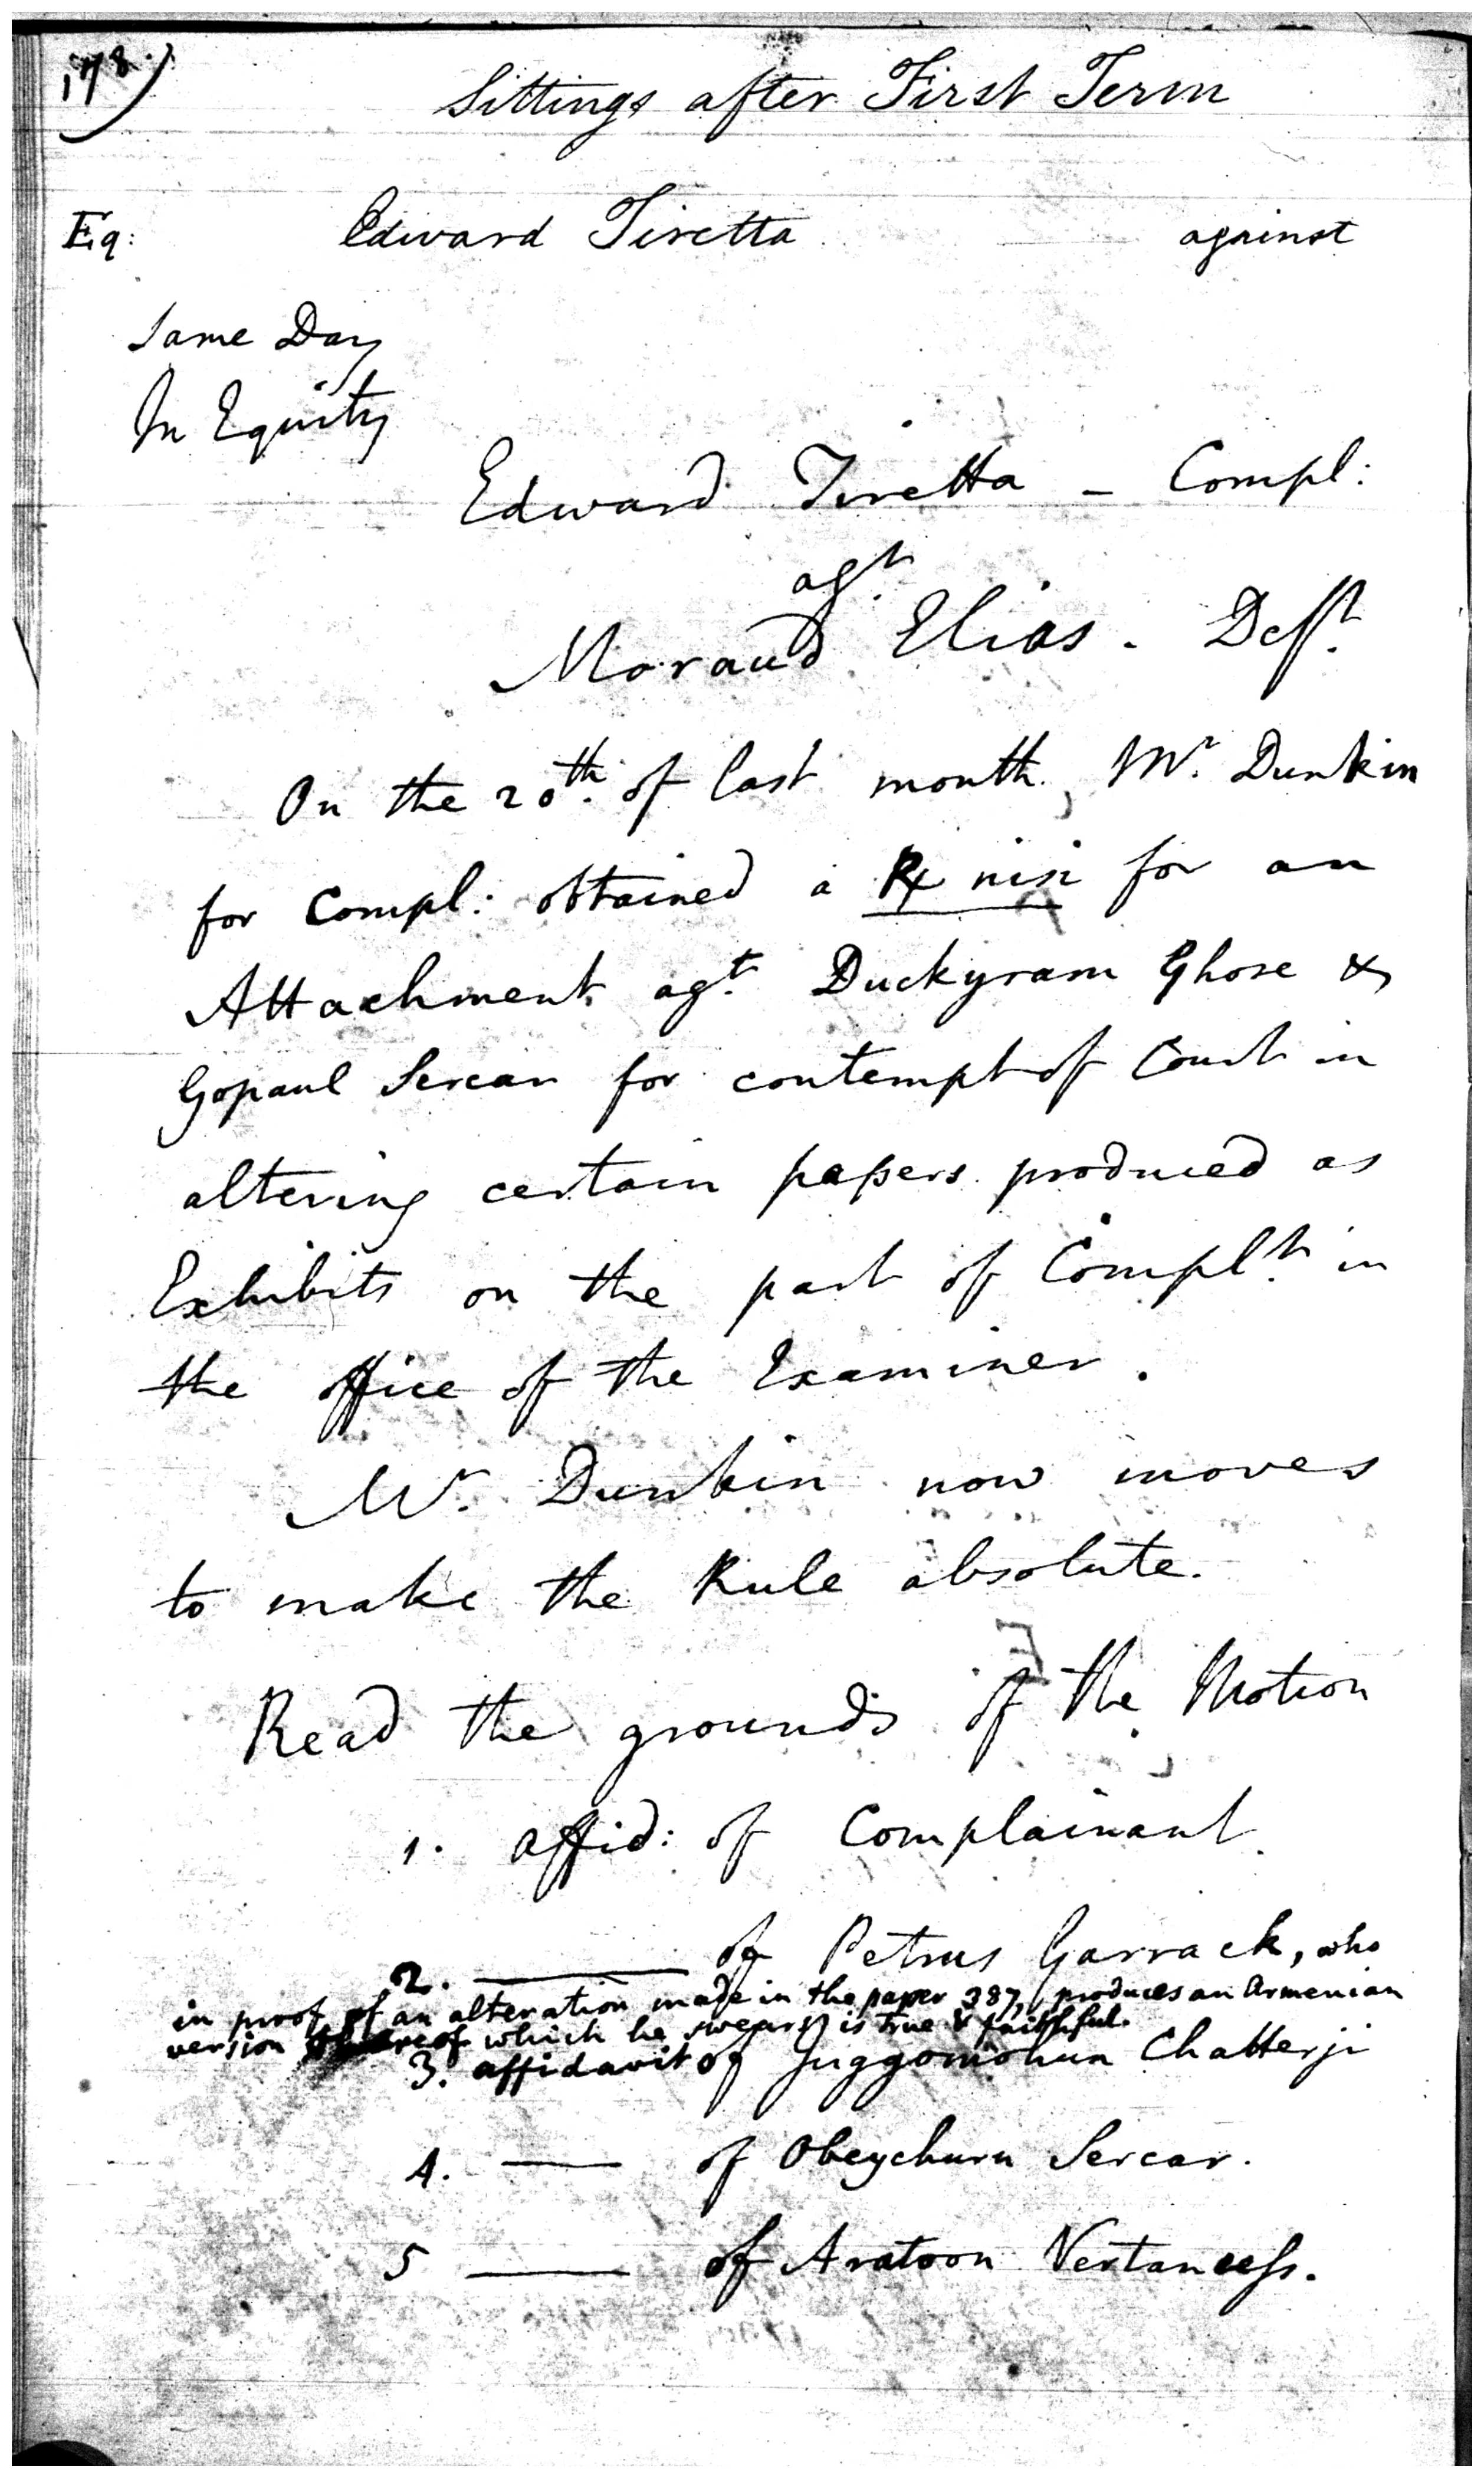 178)
Sittings after First Term
Eq: Edward Tiretta against
Same Day
In Equity
Edward Tiretta - Compl:
agt.
Moraud Elias - Deft.
On the 20th. of last month, Mr. Dunkin
for Compl: obtained a R nisi for an
Attachment agt. Duckyram Ghose &
Gopaul Sercar for contempt of Court in
altering certain papers produced as
Exhibits on the part of Complt. in
the office of the Examiner.
Mr. Dunkin now moves
to make the Rule absolute.
Read the grounds of the Motion
1. affid: of Complainant.
2. —— of Petrus Garrack, who
in proof of an alteration made in the paper 387, produces an Armenian
version which he swears is true & faithful.
3. affidavit of Juggomohun Chatterji
4. —— of Obeychurn Sercar.
5 —— of Aratoon Vertaness.